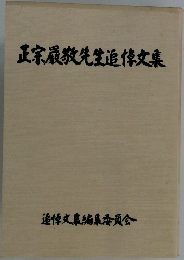 正宗嚴敬先生追悼文集
追悼文集編集委員会